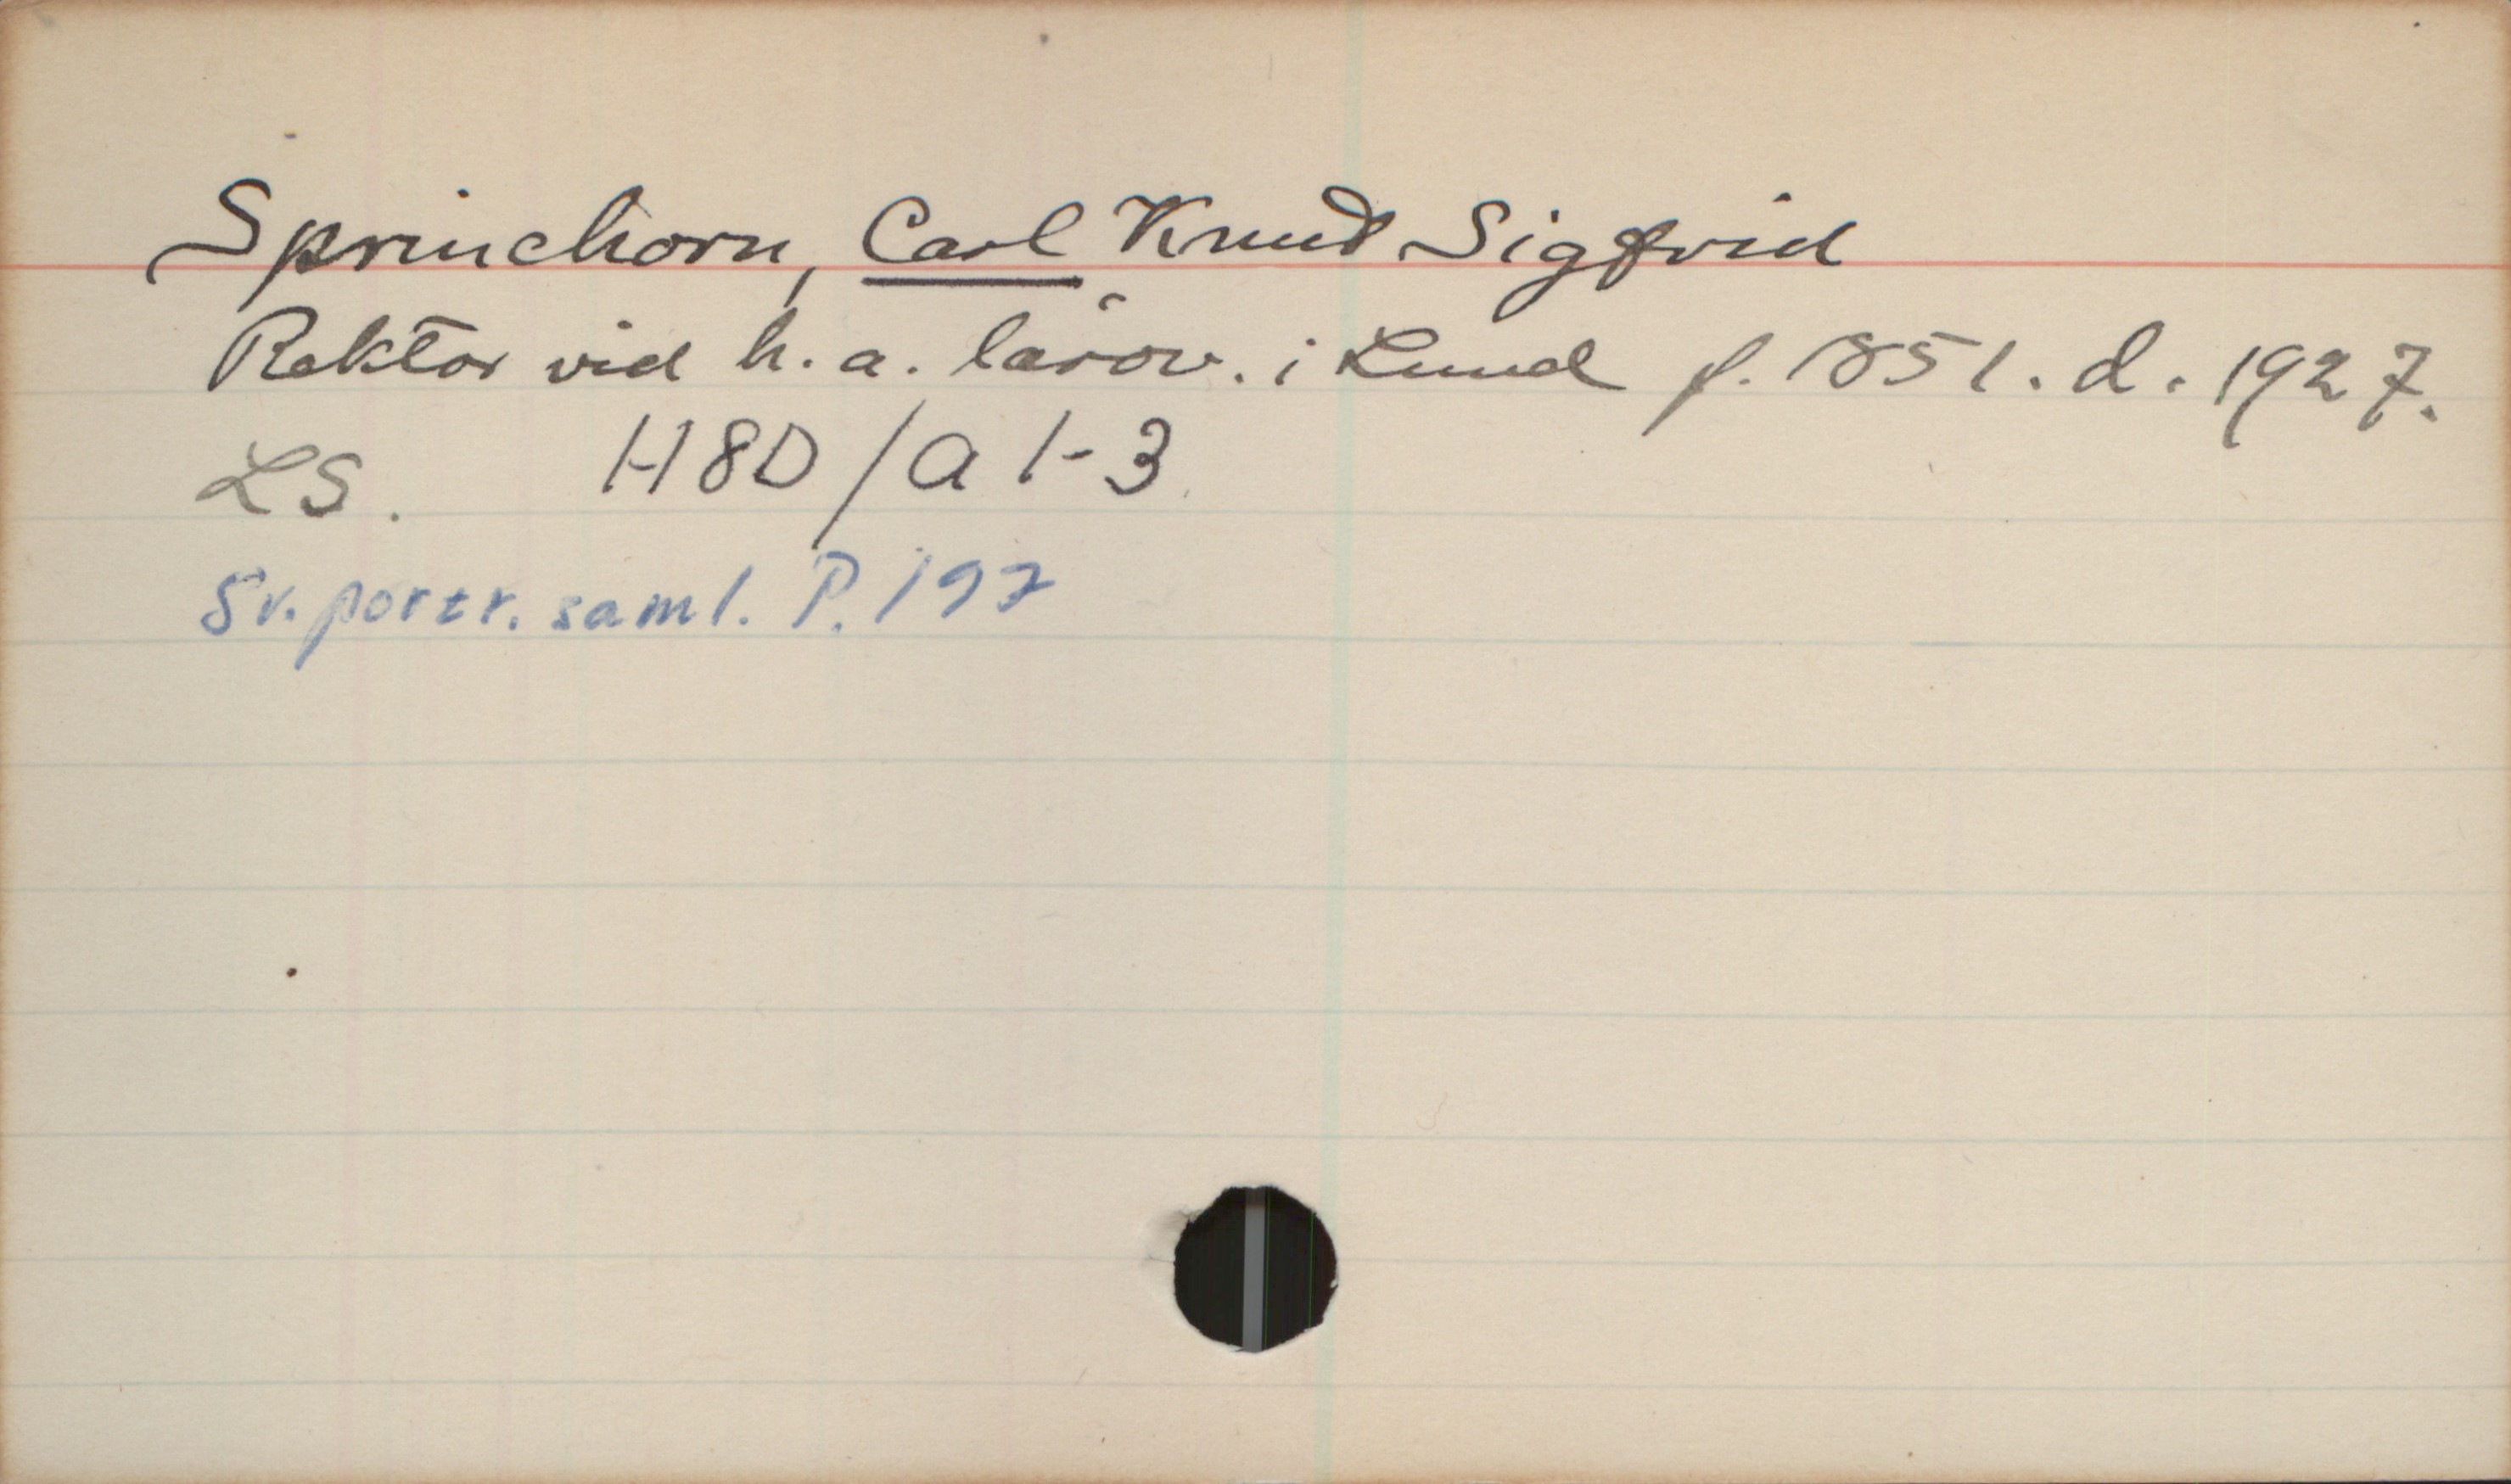 Sprinchorn, Carl Knud Sigfrid
Rektor vid h. a. lärov. i Lund f. 1851. d. 1927.
LS. H8D/a 1-3
Sv. portr. saml. P. 197